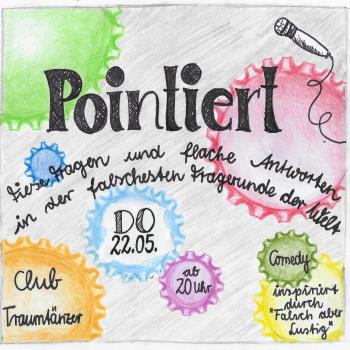 Pointiert
Tiefe Fragen und flache Antworten
in der falschesten Fragerunde der Welt
DO
22.05.
Club
Traumtänzer
ab
20 Uhr
Comedy
inspiriert
durch
"Falsch aber
Lustig"